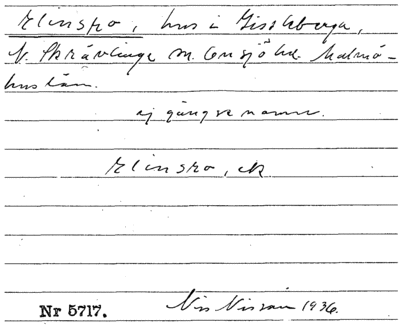 Elinsro, hus i Gissleberga,
N. Skrävlinge sn. Onsjö hd. Malmö-
hus län.
ej gängse namn.
Elinsro, ck
Nr 5717. Nils Nilsson 1936.